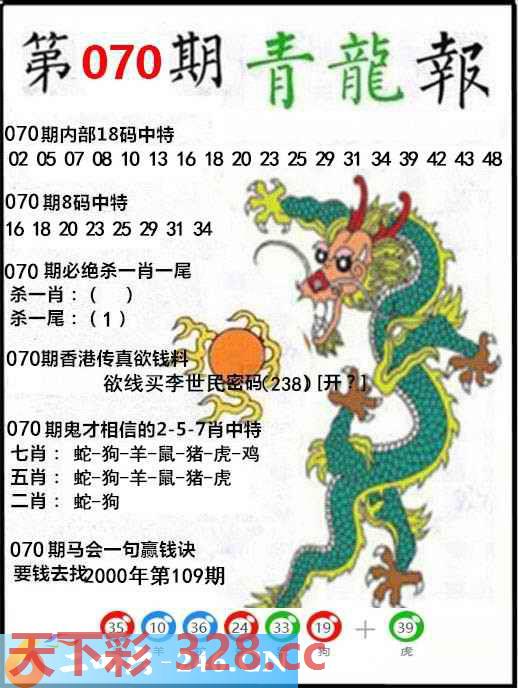 第070期青龍報
070期内部18码中特
02 05 07 08 10 13 16 18 20 23 25 29 31 34 39 42 43 48
070期8码中特
16 18 20 23 25 29 31 34
070期必绝杀一肖一尾
杀一肖：（ ）
杀一尾：（1）
070期香港传真欲钱料
欲线买李世民密码(238)[开?]
070期鬼才相信的2-5-7肖中特
七肖：蛇-狗-羊-鼠-猪-虎-鸡
五肖：蛇-狗-羊-鼠-猪-虎
二肖：蛇-狗
070期马会一句赢钱诀
要钱去找2000年第109期
35 10 36 24 33 19 + 39
羊 狗 虎
天下彩 328.cc